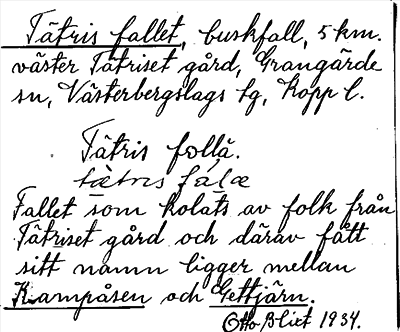 Tätris fallet, buskfall, 5 km.
väster Tätriset gård, Grangärde
sn, Västerbergslags tg, Kopp l.
Tätris fallä.
tætris falæ
Fallet som kolats av folk från
Tätriset gård och därav fått
sitt namn ligger mellan
Kampåsen och Gettjärn.
Otto Blixt 1934.